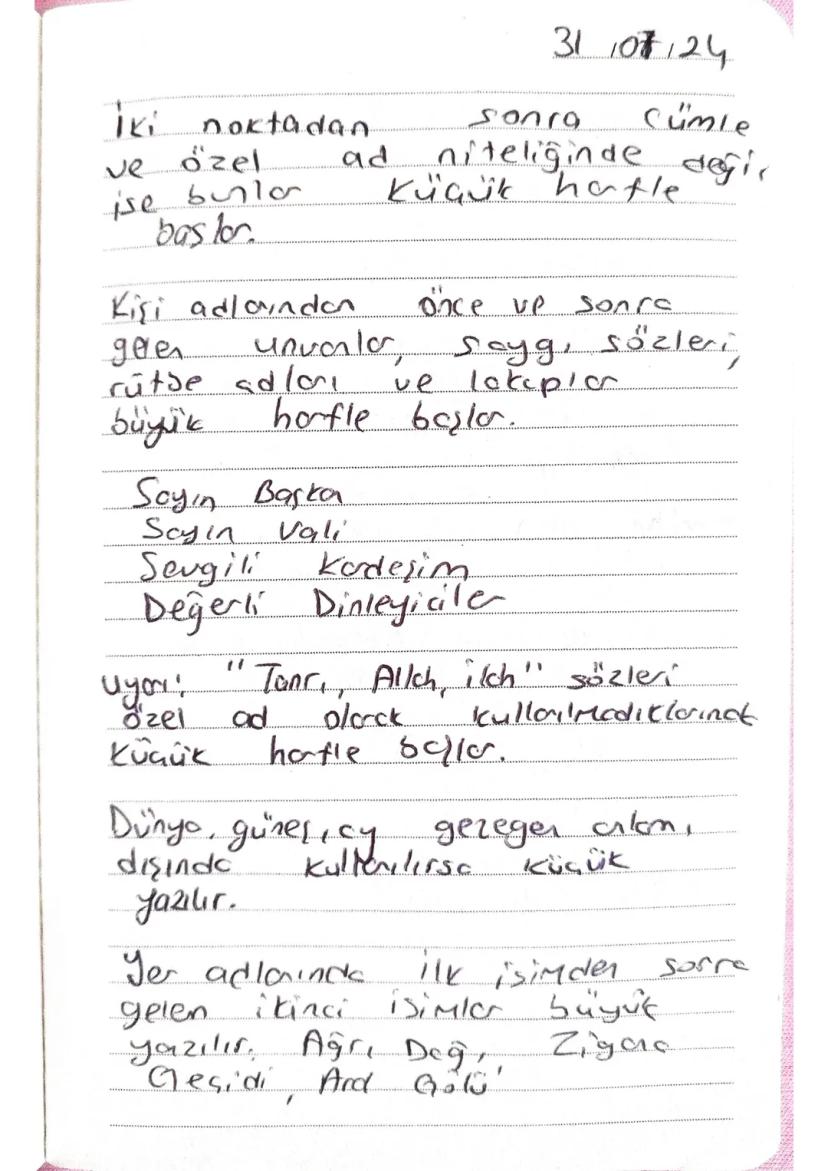 31.07.24
İki noktadan sonra cümle
ve özel ad niteliğinde değil
ise bunlar küçük harfle
başlar.
Kişi adlarından önce ve sonra
gelen unvanlar, saygı sözleri,
rütbe adları ve lakaplar
büyük harfle başlar.
Sayın Başkan
Sayın Vali
Sevgili Kardeşim
Değerli Dinleyiciler
Uyarı! "Tanrı, Allah, ilah" sözleri
özel ad olarak kullanılmadıklarında
küçük harfle başlar.
Dünya, güneş, ay gezegen anlamı
dışında kullanılırsa küçük
yazılır.
Yer adlarında ilk isimden sonra
gelen ikinci isimler büyük
yazılır. Ağrı Dağı, Zigana
Geçidi, Aral Gölü